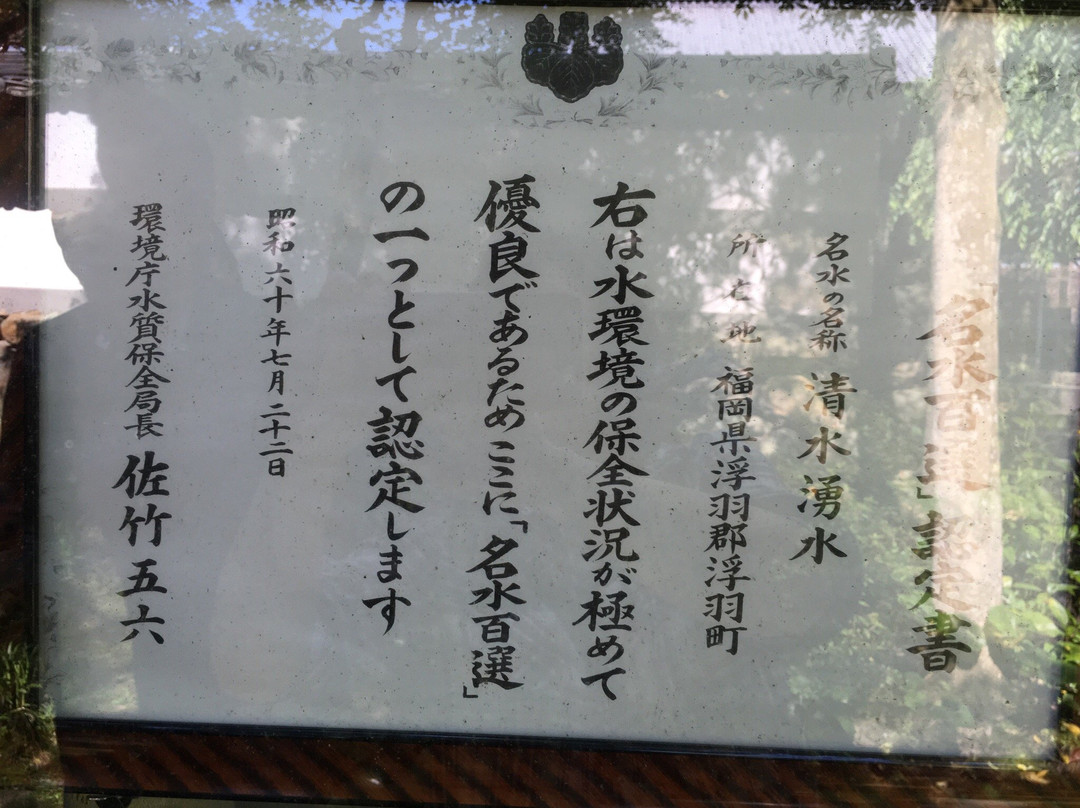 「名水百選」認定書
名水の名称 清水湧水
所在地 福岡県浮羽郡浮羽町
右は水環境の保全状況が極めて
優良であるためここに「名水百選」
の一つとして認定します
昭和六十年七月二十二日
環境庁水質保全局長 佐竹五六